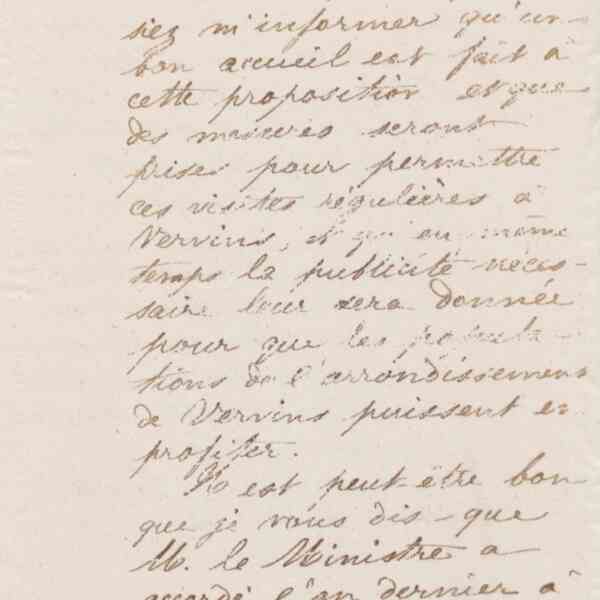 siez m'informer qu'un
bon accueil est fait à
cette proposition et que
des mesures seront
prises pour permettre
ces visites régulières à
Vervins, et qu'en même
temps la publicité néces-
saire leur sera donnée
pour que les popula-
tions de l'arrondissement
de Vervins puissent en
profiter.
Il est peut-être bon
que je vous dis-que
M. le Ministre a
accordé l'an dernier à